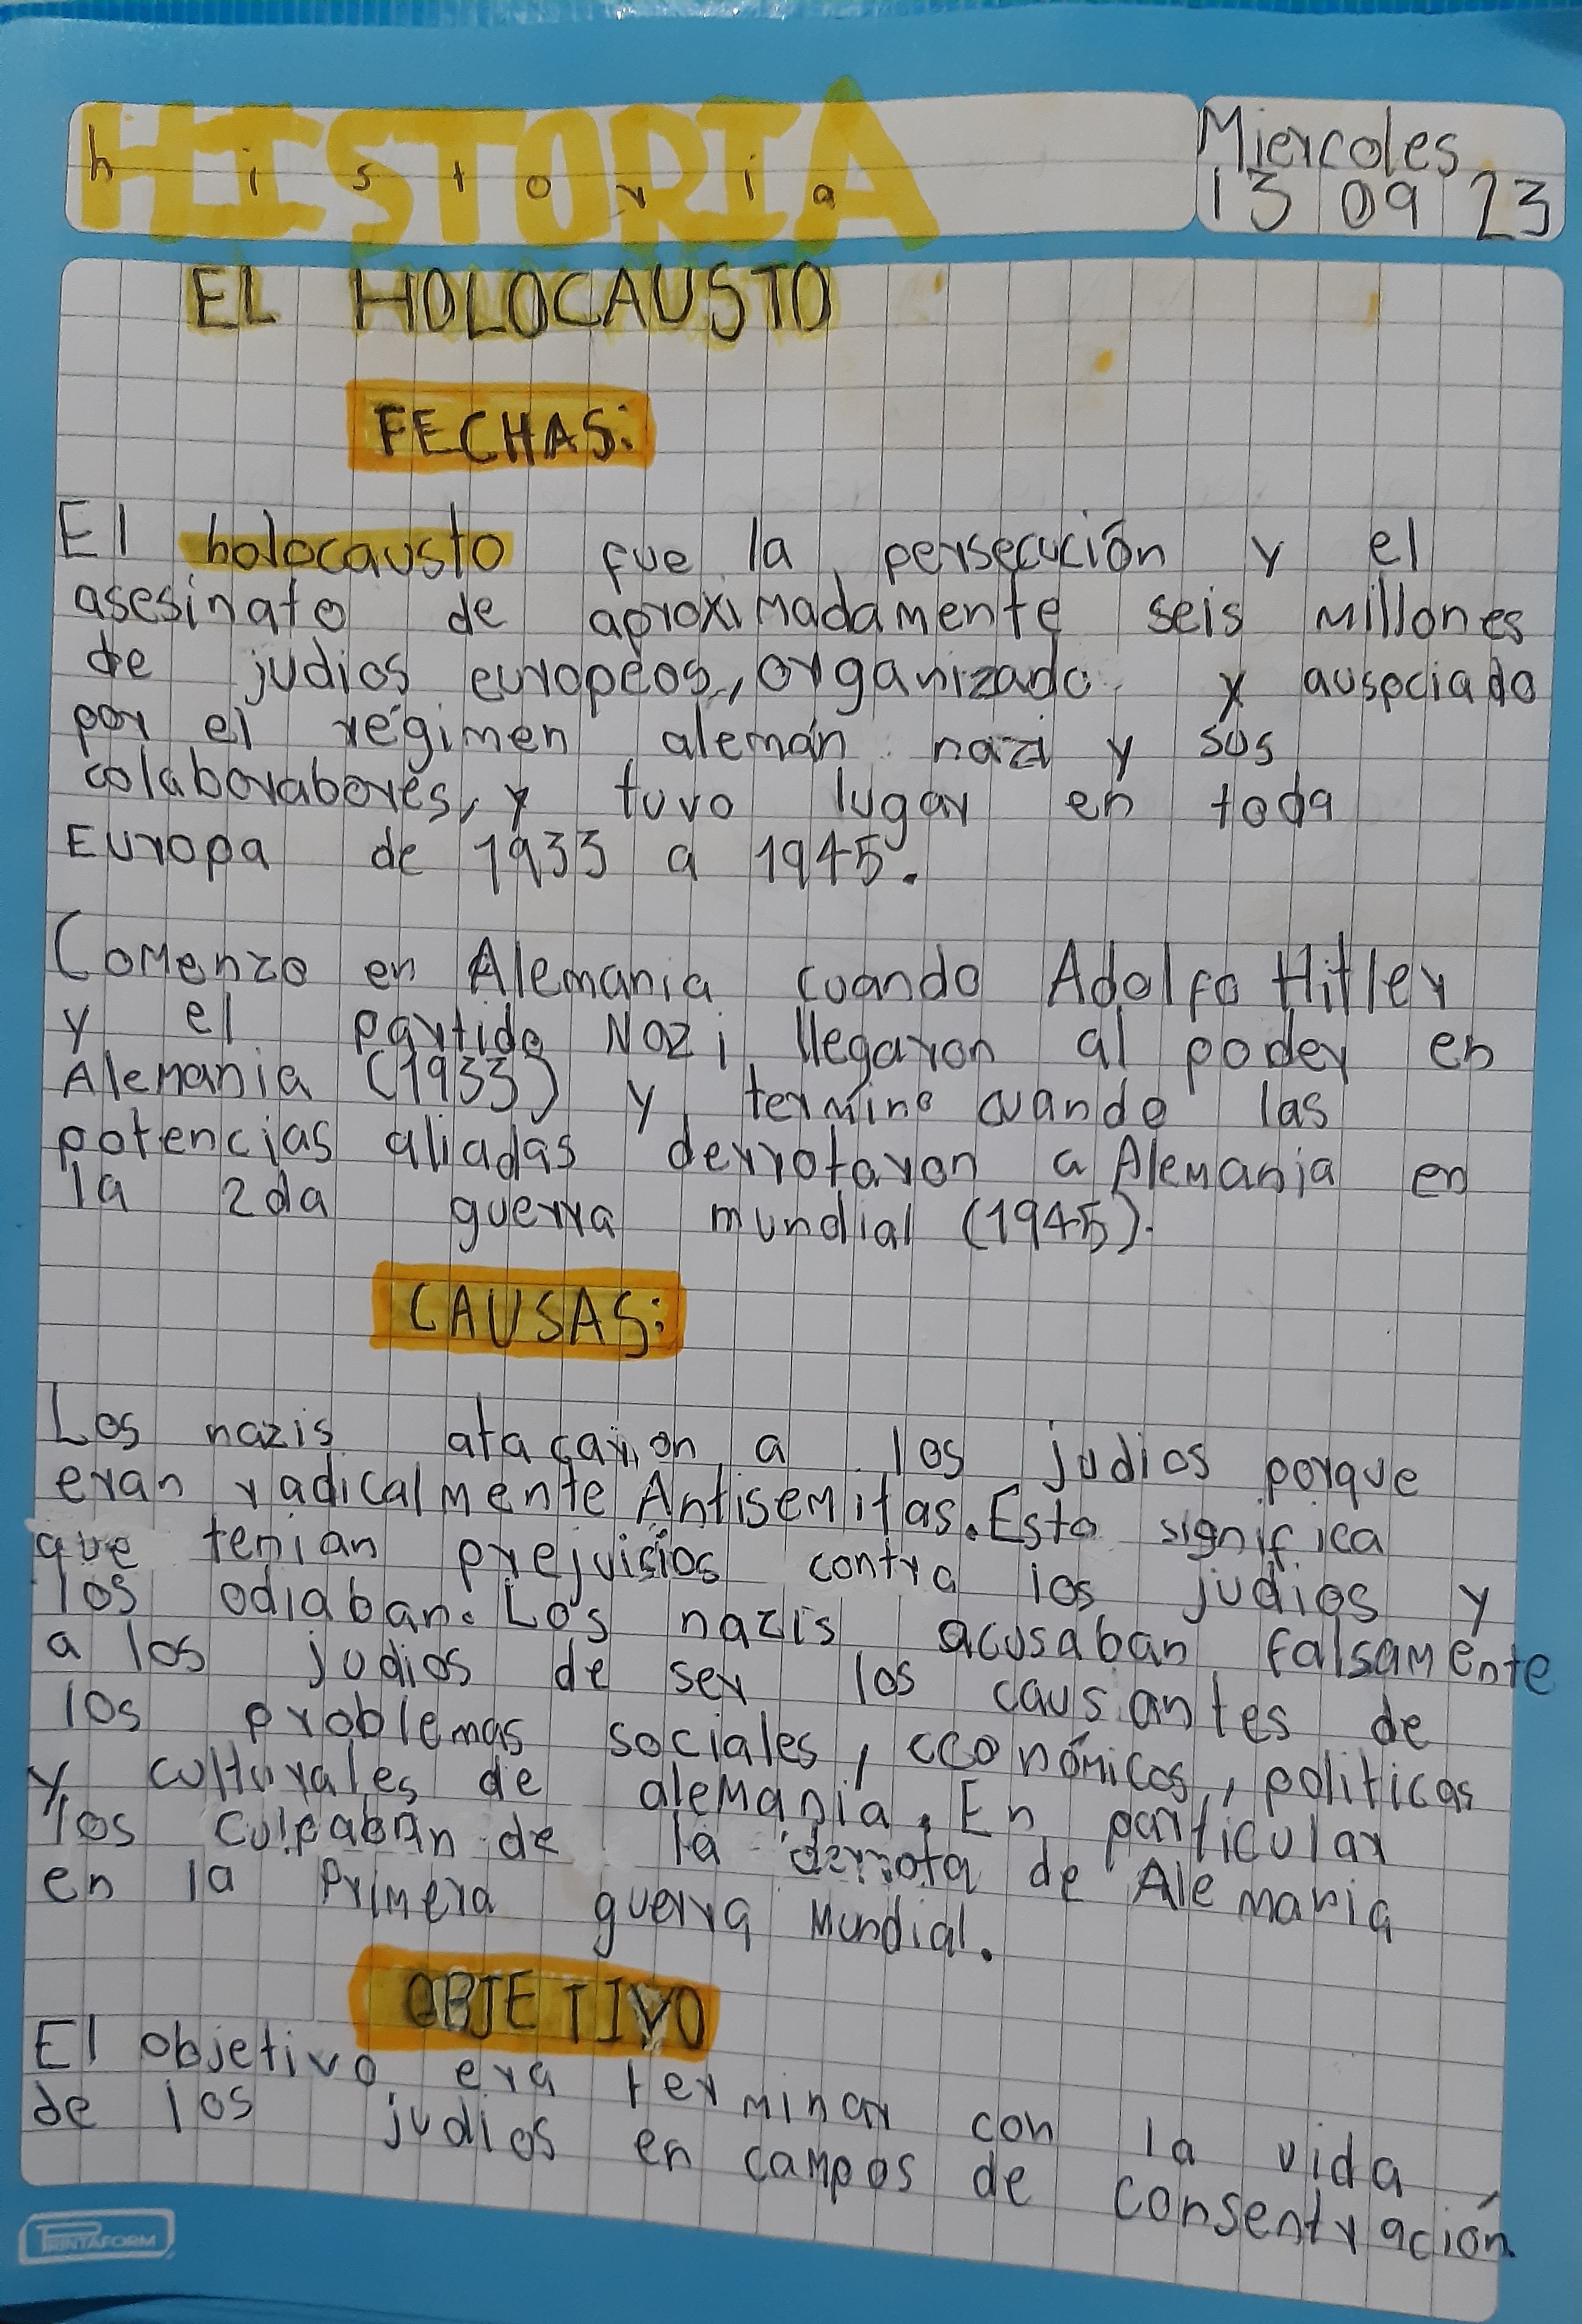 HISTORIA
historia
Miercoles
13 09 23
EL HOLOCAUSTO
FECHAS:
El holocausto fue la persecución y el
asesinato de aproximadamente seis millones
de judios europeos, organizado y auspiciado
por el régimen alemán nazi y sus
colaborabores, y tuvo lugar en toda
Europa de 1933 a 1945.
Comenzo en Alemania cuando Adolfo Hitler
y el partido Nazi llegaron al poder en
Alemania (1933) y termino cuando las
potencias aliadas derrotaron a Alemania en
la 2da guerra mundial (1945).
CAUSAS:
Los nazis atacaron a los judios porque
eran radicalmente Antisemitas. Esto significa
que tenian prejuisios contra los judios y
los odiaban. Los nazis acusaban falsamente
a los judios de ser los causantes de
los problemas sociales, economicos, politicas
y culturales de alemania. En particular
los culpaban de la derrota de Alemania
en la Primera guerra Mundial.
OBJETIVO
El objetivo era terminar con la vida
de los judios en campos de consentración.
PRINTAFORM